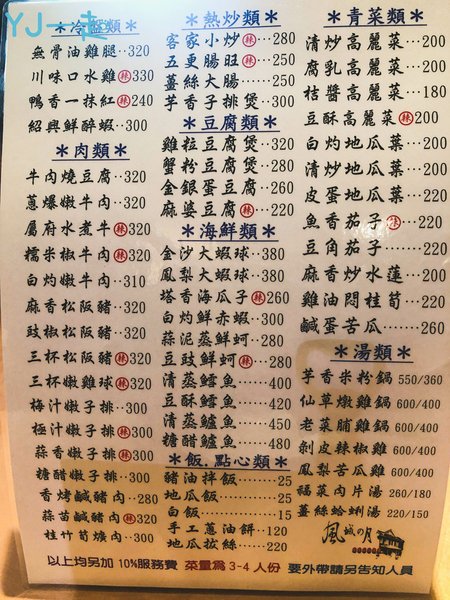 YJ一走
＊冷盤類＊
無骨油雞腿‥320
川味口水雞(辣)330
鴨香一抹紅(辣)240
紹興鮮醉蝦‥300
＊肉類＊
牛肉燒豆腐‥320
蔥爆嫩牛肉‥320
屬府水煮牛(辣)320
糯米椒牛肉(辣)320
白灼嫩牛肉‥310
麻香松阪豬‥320
豉椒松阪豬‥320
三杯松阪豬(辣)320
三杯嫩雞球(辣)320
梅汁嫩子排‥300
極汁嫩子排(辣)300
蒜香嫩子排(辣)300
糖醋嫩子排‥300
香烤鹹豬肉‥280
蒜苗鹹豬肉(辣)320
桂竹筍爌肉‥300
＊熱炒類＊
客家小炒(辣)‥280
五更腸旺(辣)‥250
薑絲大腸‥‥250
芋香子排煲‥300
＊豆腐類＊
雞粒豆腐煲‥320
蟹粉豆腐煲‥280
金銀蛋豆腐‥260
麻婆豆腐(辣)‥220
＊海鮮類＊
金沙大蝦球‥380
鳳梨大蝦球‥380
塔香海瓜子(辣)260
白灼鮮赤蝦‥300
蒜泥蒸鮮蚵‥280
豆豉鮮蚵(辣)‥280
清蒸鱈魚‥‥400
豆酥鱈魚‥‥420
清蒸鱸魚‥‥450
糖醋鱸魚‥‥480
＊飯.點心類＊
豬油拌飯‥‥25
地瓜飯‥‥‥25
白飯‥‥‥‥15
手工蔥油餅‥120
地瓜拔絲‥‥220
＊青菜類＊
清炒高麗菜‥200
腐乳高麗菜‥200
桔醬高麗菜‥180
豆酥高麗菜(辣)200
白灼地瓜葉‥200
清炒地瓜葉‥200
皮蛋地瓜葉‥220
魚香茄子(辣)‥220
豆角茄子‥‥220
麻香炒水蓮‥220
雞油悶桂筍‥220
鹹蛋苦瓜‥‥260
＊湯類＊
芋香米粉鍋 550/360
仙草燉雞鍋 600/400
老菜脯雞鍋 600/400
剝皮辣椒雞 600/400
鳳梨苦瓜雞 600/400
福菜肉片湯 260/180
薑絲蛤蜊湯 220/150
風城の月
以上均另加 10%服務費 菜量為 3-4 人份 要外帶請另告知人員